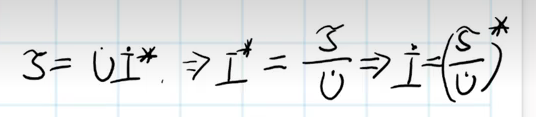 S̃ = U̇İ*. ⇒ İ* = S̃/U̇ ⇒ İ = (S̃/U̇)*